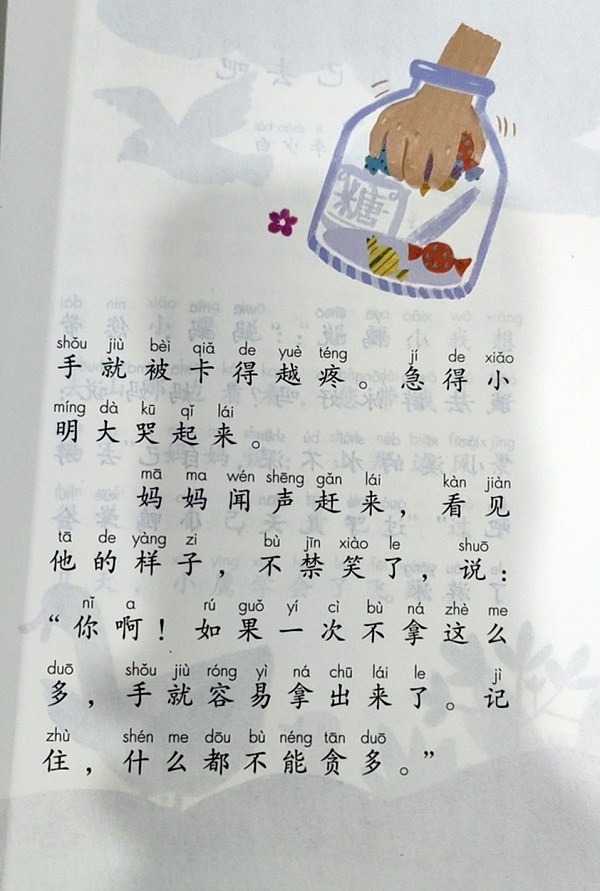 糖
shǒu jiù bèi qiǎ de yuè téng jí de xiǎo
手就被卡得越疼。急得小
míng dà kū qǐ lái
明大哭起来。
mā ma wén shēng gǎn lái kàn jiàn
妈妈闻声赶来，看见
tā de yàng zi bù jīn xiào le shuō
他的样子，不禁笑了，说：
nǐ a rú guǒ yí cì bù ná zhè me
“你啊！如果一次不拿这么
duō shǒu jiù róng yì ná chū lái le jì
多，手就容易拿出来了。记
zhù shén me dōu bù néng tān duō
住，什么都不能贪多。”